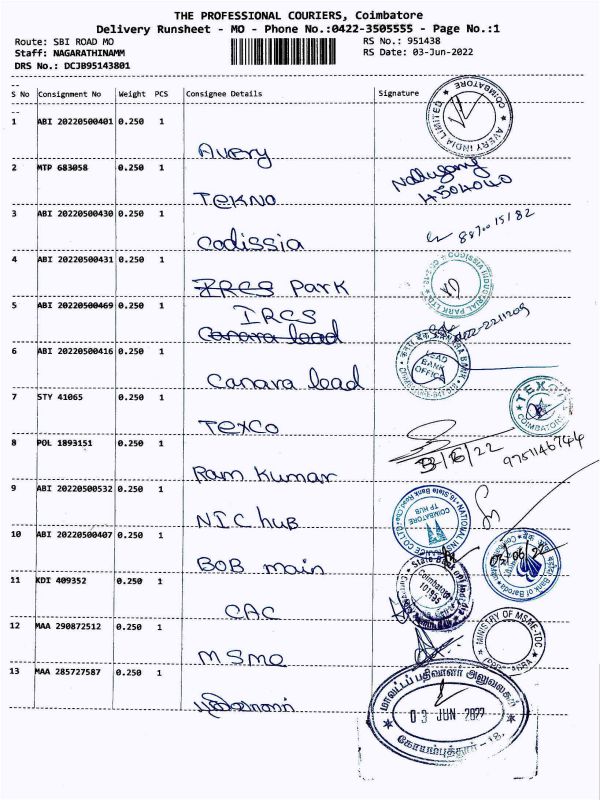 THE PROFESSIONAL COURIERS, Coimbatore
Delivery Runsheet - MO - Phone No.:0422-3505555 - Page No.:1
Route: SBI ROAD MO RS No.: 951438
Staff: NAGARATHINAMM RS Date: 03-Jun-2022
DRS No.: DCJB95143801
S No Consignment No Weight PCS Consignee Details Signature
1 ABI 20220500401 0.250 1
AVERY INDIA LIMITED COIMBATORE
Avery
2 MTP 683058 0.250 1
TEKNO
4504040
3 ABI 20220500430 0.250 1
Codissia
4 ABI 20220500431 0.250 1
IRCS Park
5 ABI 20220500469 0.250 1
IRCS
Canara lead
6 ABI 20220500416 0.250 1
LEAD BANK OFFICE
Canara lead
7 STY 41065 0.250 1
TEXCO COIMBATORE
Texco
8 POL 1893151 0.250 1
3/6/22 9751146744
Ram Kumar
9 ABI 20220500532 0.250 1
COIMBATORE TP HUB
NIC hub
10 ABI 20220500407 0.250 1
03/06/22
Bank of Baroda
BOB main
11 KDI 409352 0.250 1
State Bank of India
Coimbatore
CAC
12 MAA 290872512 0.250 1
MINISTRY OF MSME-TDC
MSME
13 MAA 285727587 0.250 1
மாவட்டப் பதிவாளர் அலுவலகம்
03 JUN 2022
கோயம்புத்தூர் - 18.